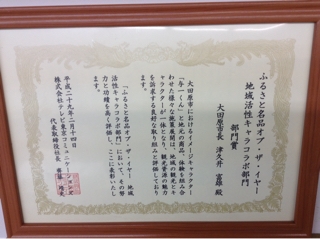 ふるさと名品オブ・ザ・イヤー
地域活性キャラコラボ部門
部門賞
大田原市長 津久井 富雄 殿
大田原市におけるイメージキャラクター
「与一くん」と地元の商品、体験を組み合
わせた様々な施策展開は、地域の観光とキ
ャラクターが一体となり、観光資源の魅力
を訴求する良好な取り組みと評価しており
ます。
「ふるさと名品オブ・ザ・イヤー 地域
活性キャラコラボ部門」において、その努
力と功績を高く評価し、ここに表彰いたし
ます。
平成二十九年二月十四日
株式会社テレビ東京コミュニケーションズ
代表取締役社長